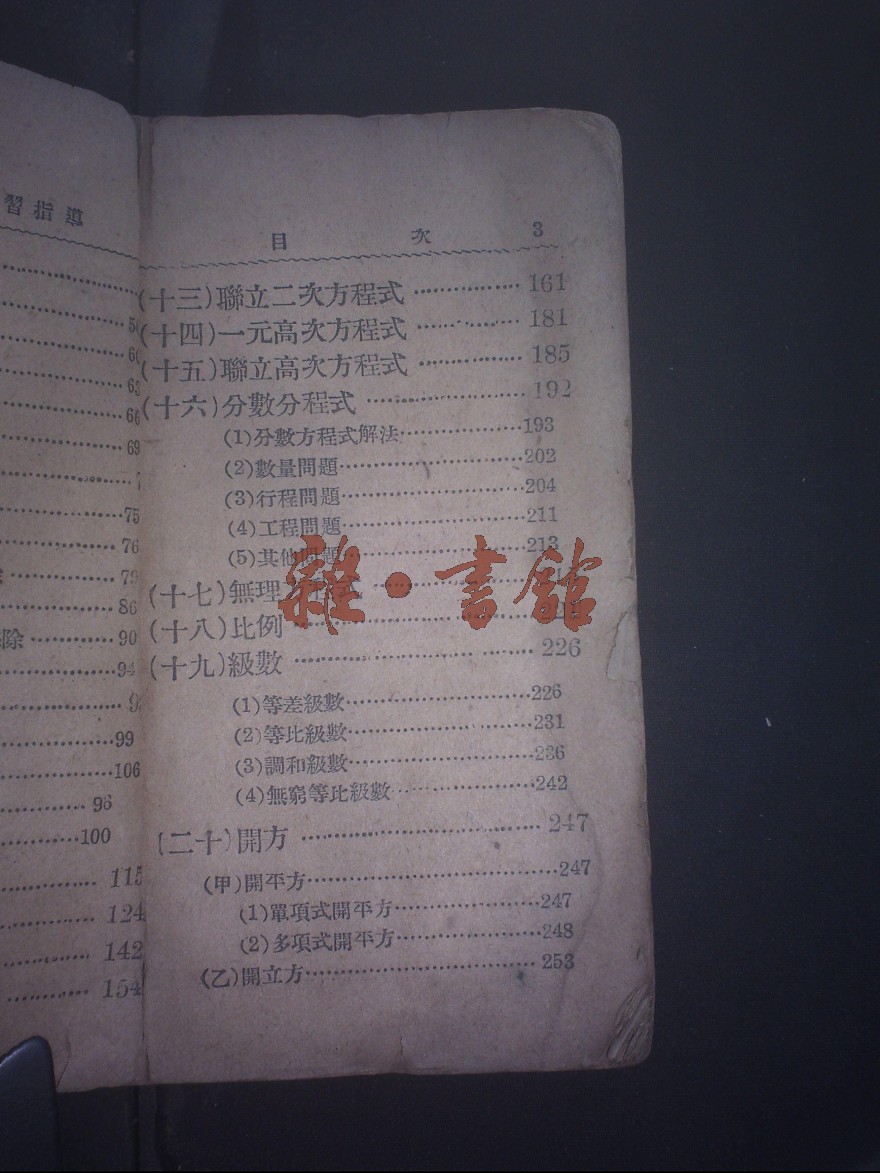 習指導
56
60
63
66
69
7
75
76
79
86
除 90
94
9
99
106
96
100
115
124
142
154
目 次 3
(十三)聯立二次方程式 161
(十四)一元高次方程式 181
(十五)聯立高次方程式 185
(十六)分數分程式 192
(1)分數方程式解法 193
(2)數量問題 202
(3)行程問題 204
(4)工程問題 211
(5)其他問題 213
(十七)無理方程式
(十八)比例
(十九)級數 226
(1)等差級數 226
(2)等比級數 231
(3)調和級數 236
(4)無窮等比級數 242
(二十)開方 247
(甲)開平方 247
(1)單項式開平方 247
(2)多項式開平方 248
(乙)開立方 253
雜·書館